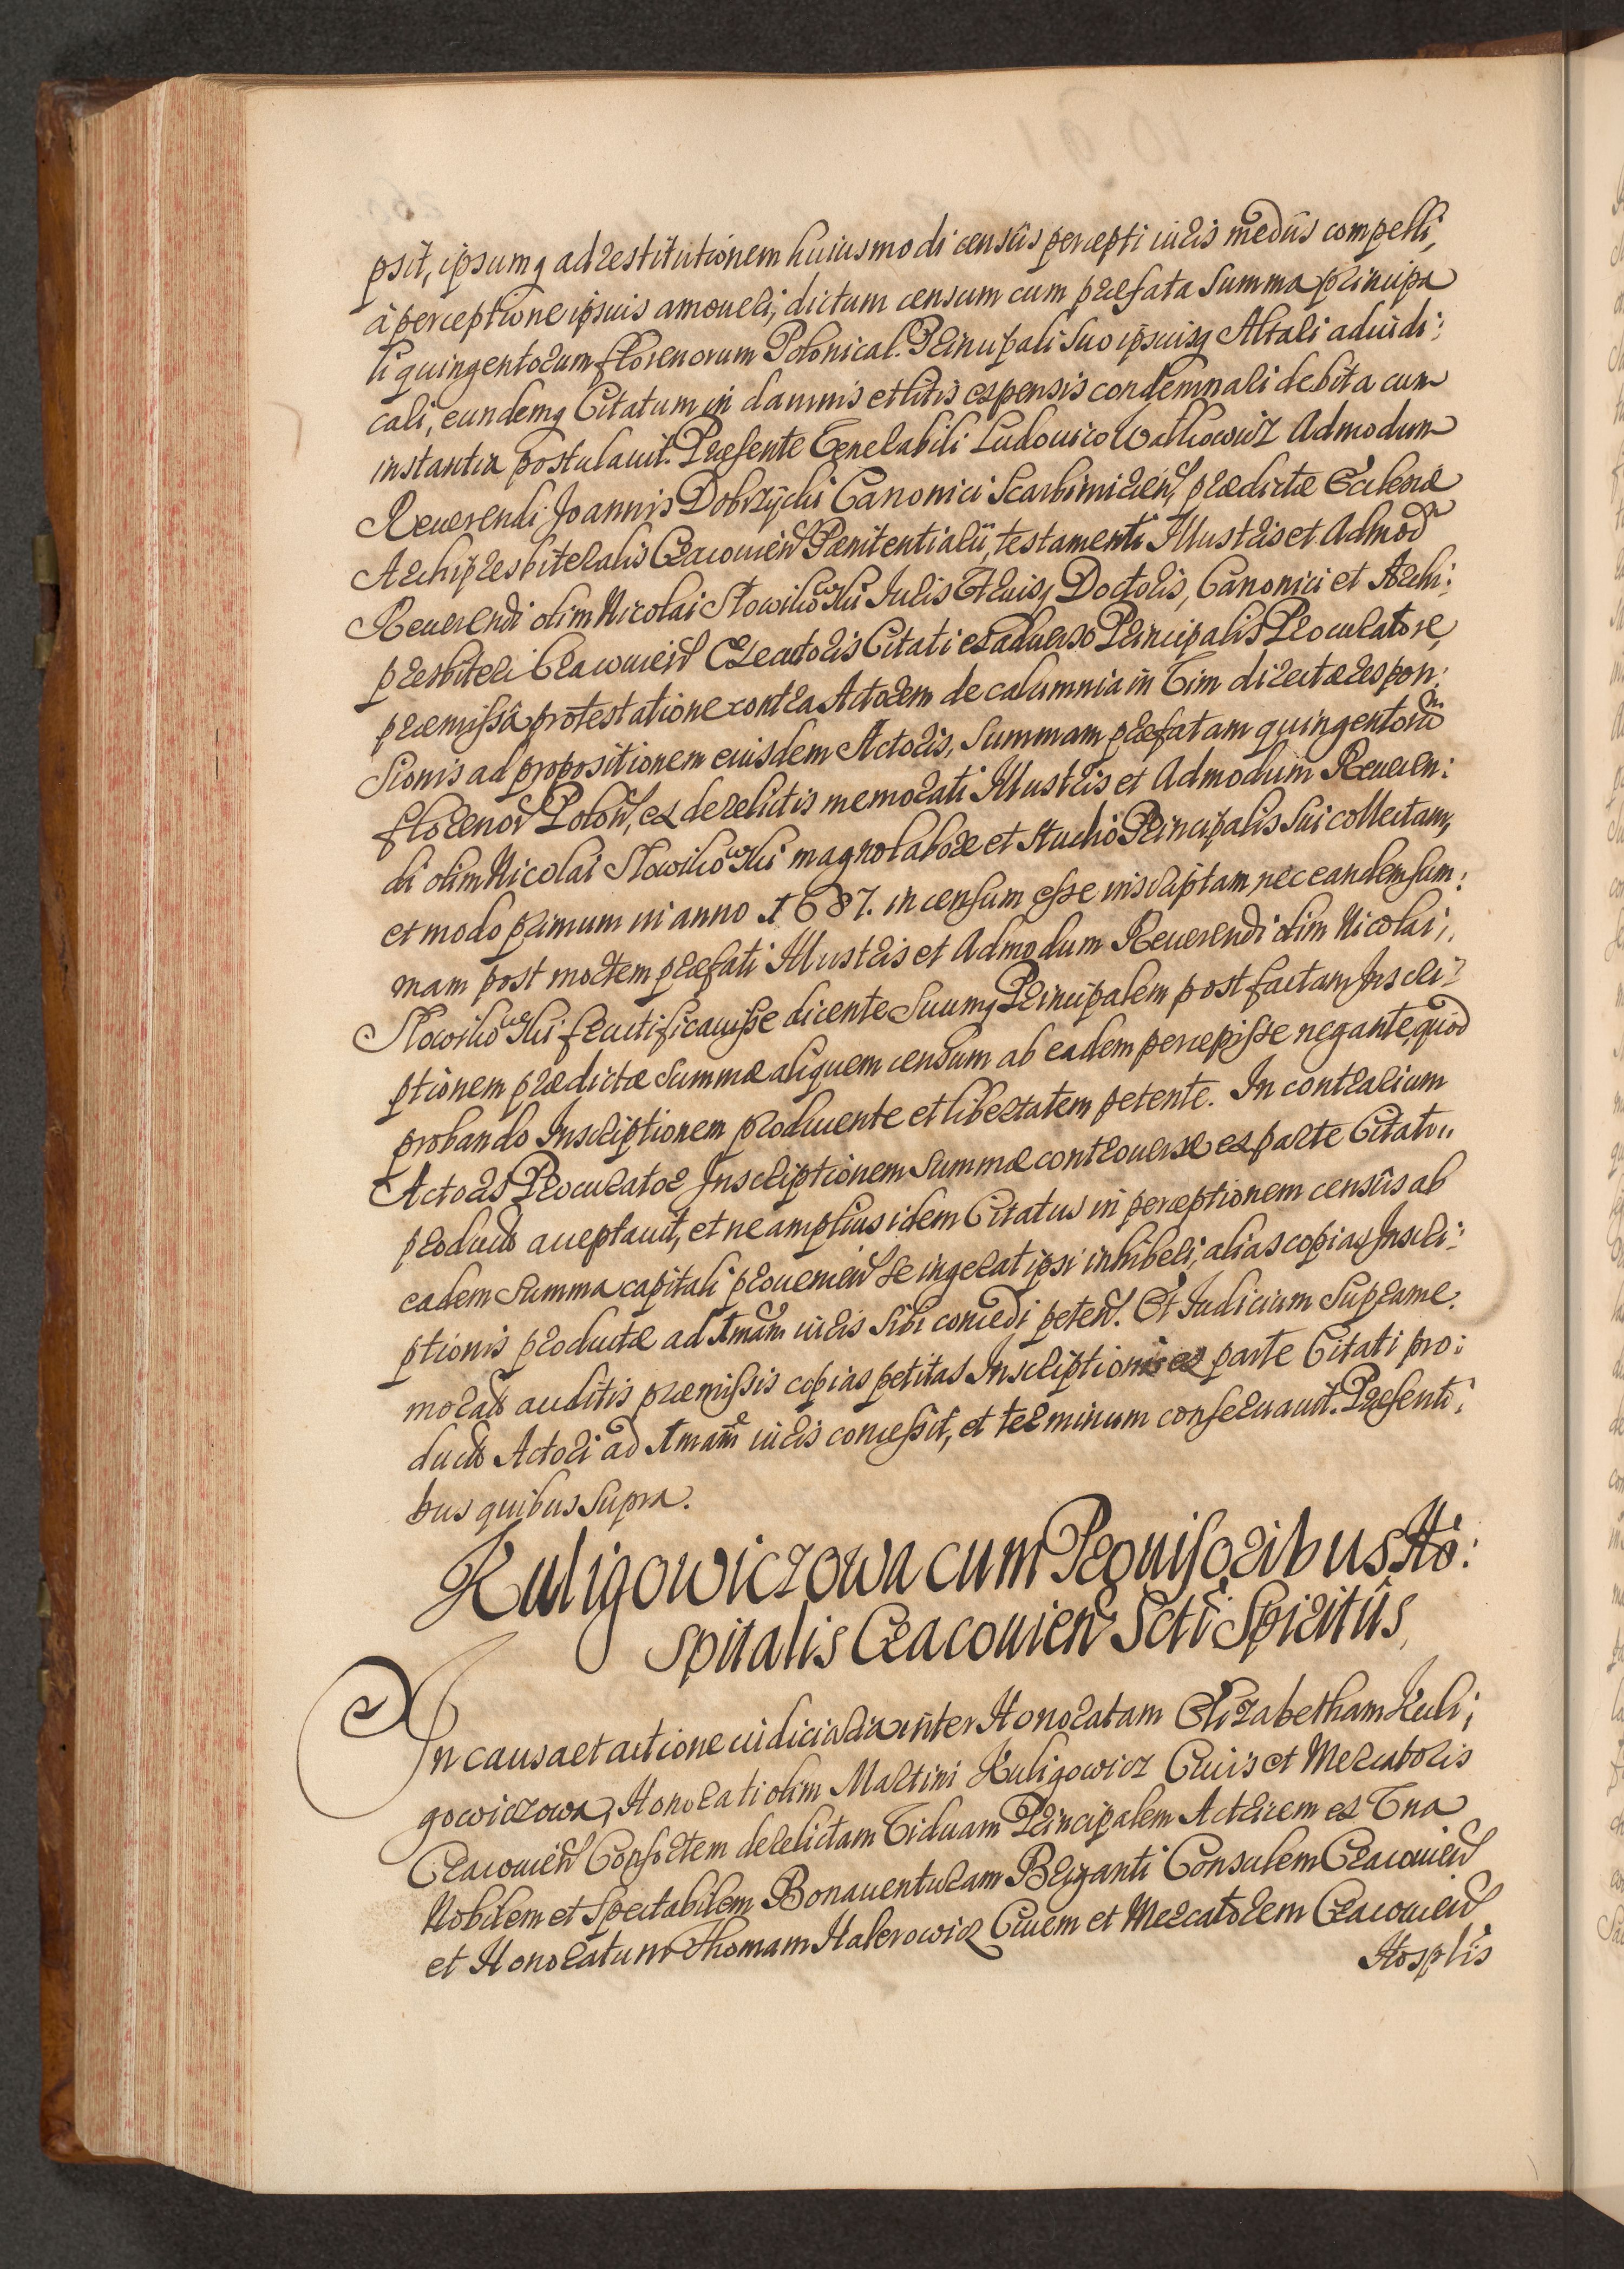 psit, ipsumq ad restitutionem huiusmodi censûs percepti iuris medijs compelli,
à perceptione ipsuis amoueri, dictum censum cum præfata Summa principa
li quingentorum florenorum Polonical. Principali suo ipsiusq Altari adiudi:
cari, eundemq Citatum in damnis et litis expensis condemnari debita cum
instantia postulauit. Præsente Venerabili Ludouico Walkowicz Admodum
Reuerendi Joannis Dobrzÿcki Canonici Scarbimirien, prædictæ Ecclesiæ
Archipresbiteralis Cracouien Pænitentiarii, testamenti Illustris et Admod
Reuerendi olim Nicolai Słowikowski Juris Vtriusq Doctoris, Canonici et Archi:
presbiteri Cracouien Executoris Citati ex aduerso Principalis Procuratore,
præmissâ protestatione contra Actorem de calumnia in Vim directæ respon:
sionis ad propositionem eiusdem Actoris, Summam præfatam quingentorū
florenor Polon, ex derelictis memorati Illustris et Admodum Reueren:
di olim Nicolai Słowikowski magno labore et studio Principalis sui collectam,
et modo primum in anno 1687. in censum esse inscriptam nec eandem sum:
mam post mortem præfati Illustris et Admodum Reuerendi olim Nicolai,
Słowikowski fructificauisse dicente Suumq Principalem post factam Inscri:
ptionem prædictæ Summæ aliquem censum ab eadem percepisse negante, quod
probando Inscriptionem producente et libertatem petente. In contrarium
Actoris Procurator Inscriptionem Summæ controuersæ ex parte Citati
product acceptauit, et ne amplius idem Citatus in perceptionem censûs ab
eadem Summa capitali prouenien se ingerat ipsi inhiberi, alias copias Inscri:
ptionis productæ ad 1mam iuris sibi concedi peten. Et Judicium Supræme:
morat auditis præmissis copias petitas Inscriptionis ex parte Citati pro:
duct Actori ad 1mam iuris concessit, et terminum conseruauit. Præsenti:
bus quibus supra.
Kuligowiczowa cum Prouisoribus Ho:
spitalis Cracouien Scti Spiritûs
In causa et actione iudiciaria inter Honoratam Elizabetham Kuli:
gowiczowa, Honorati olim Martini Kuligowicz Ciuis et Mercatoris
Cracouien Consortem derelictam Viduam Principalem Actricem ex Vna
Nobilem et Spectabilem Bonauenturam Briganti Consulem Cracouien
et Honoratum Thomam Halerowicz Ciuem et Mercatorem Cracouien
Hosplis